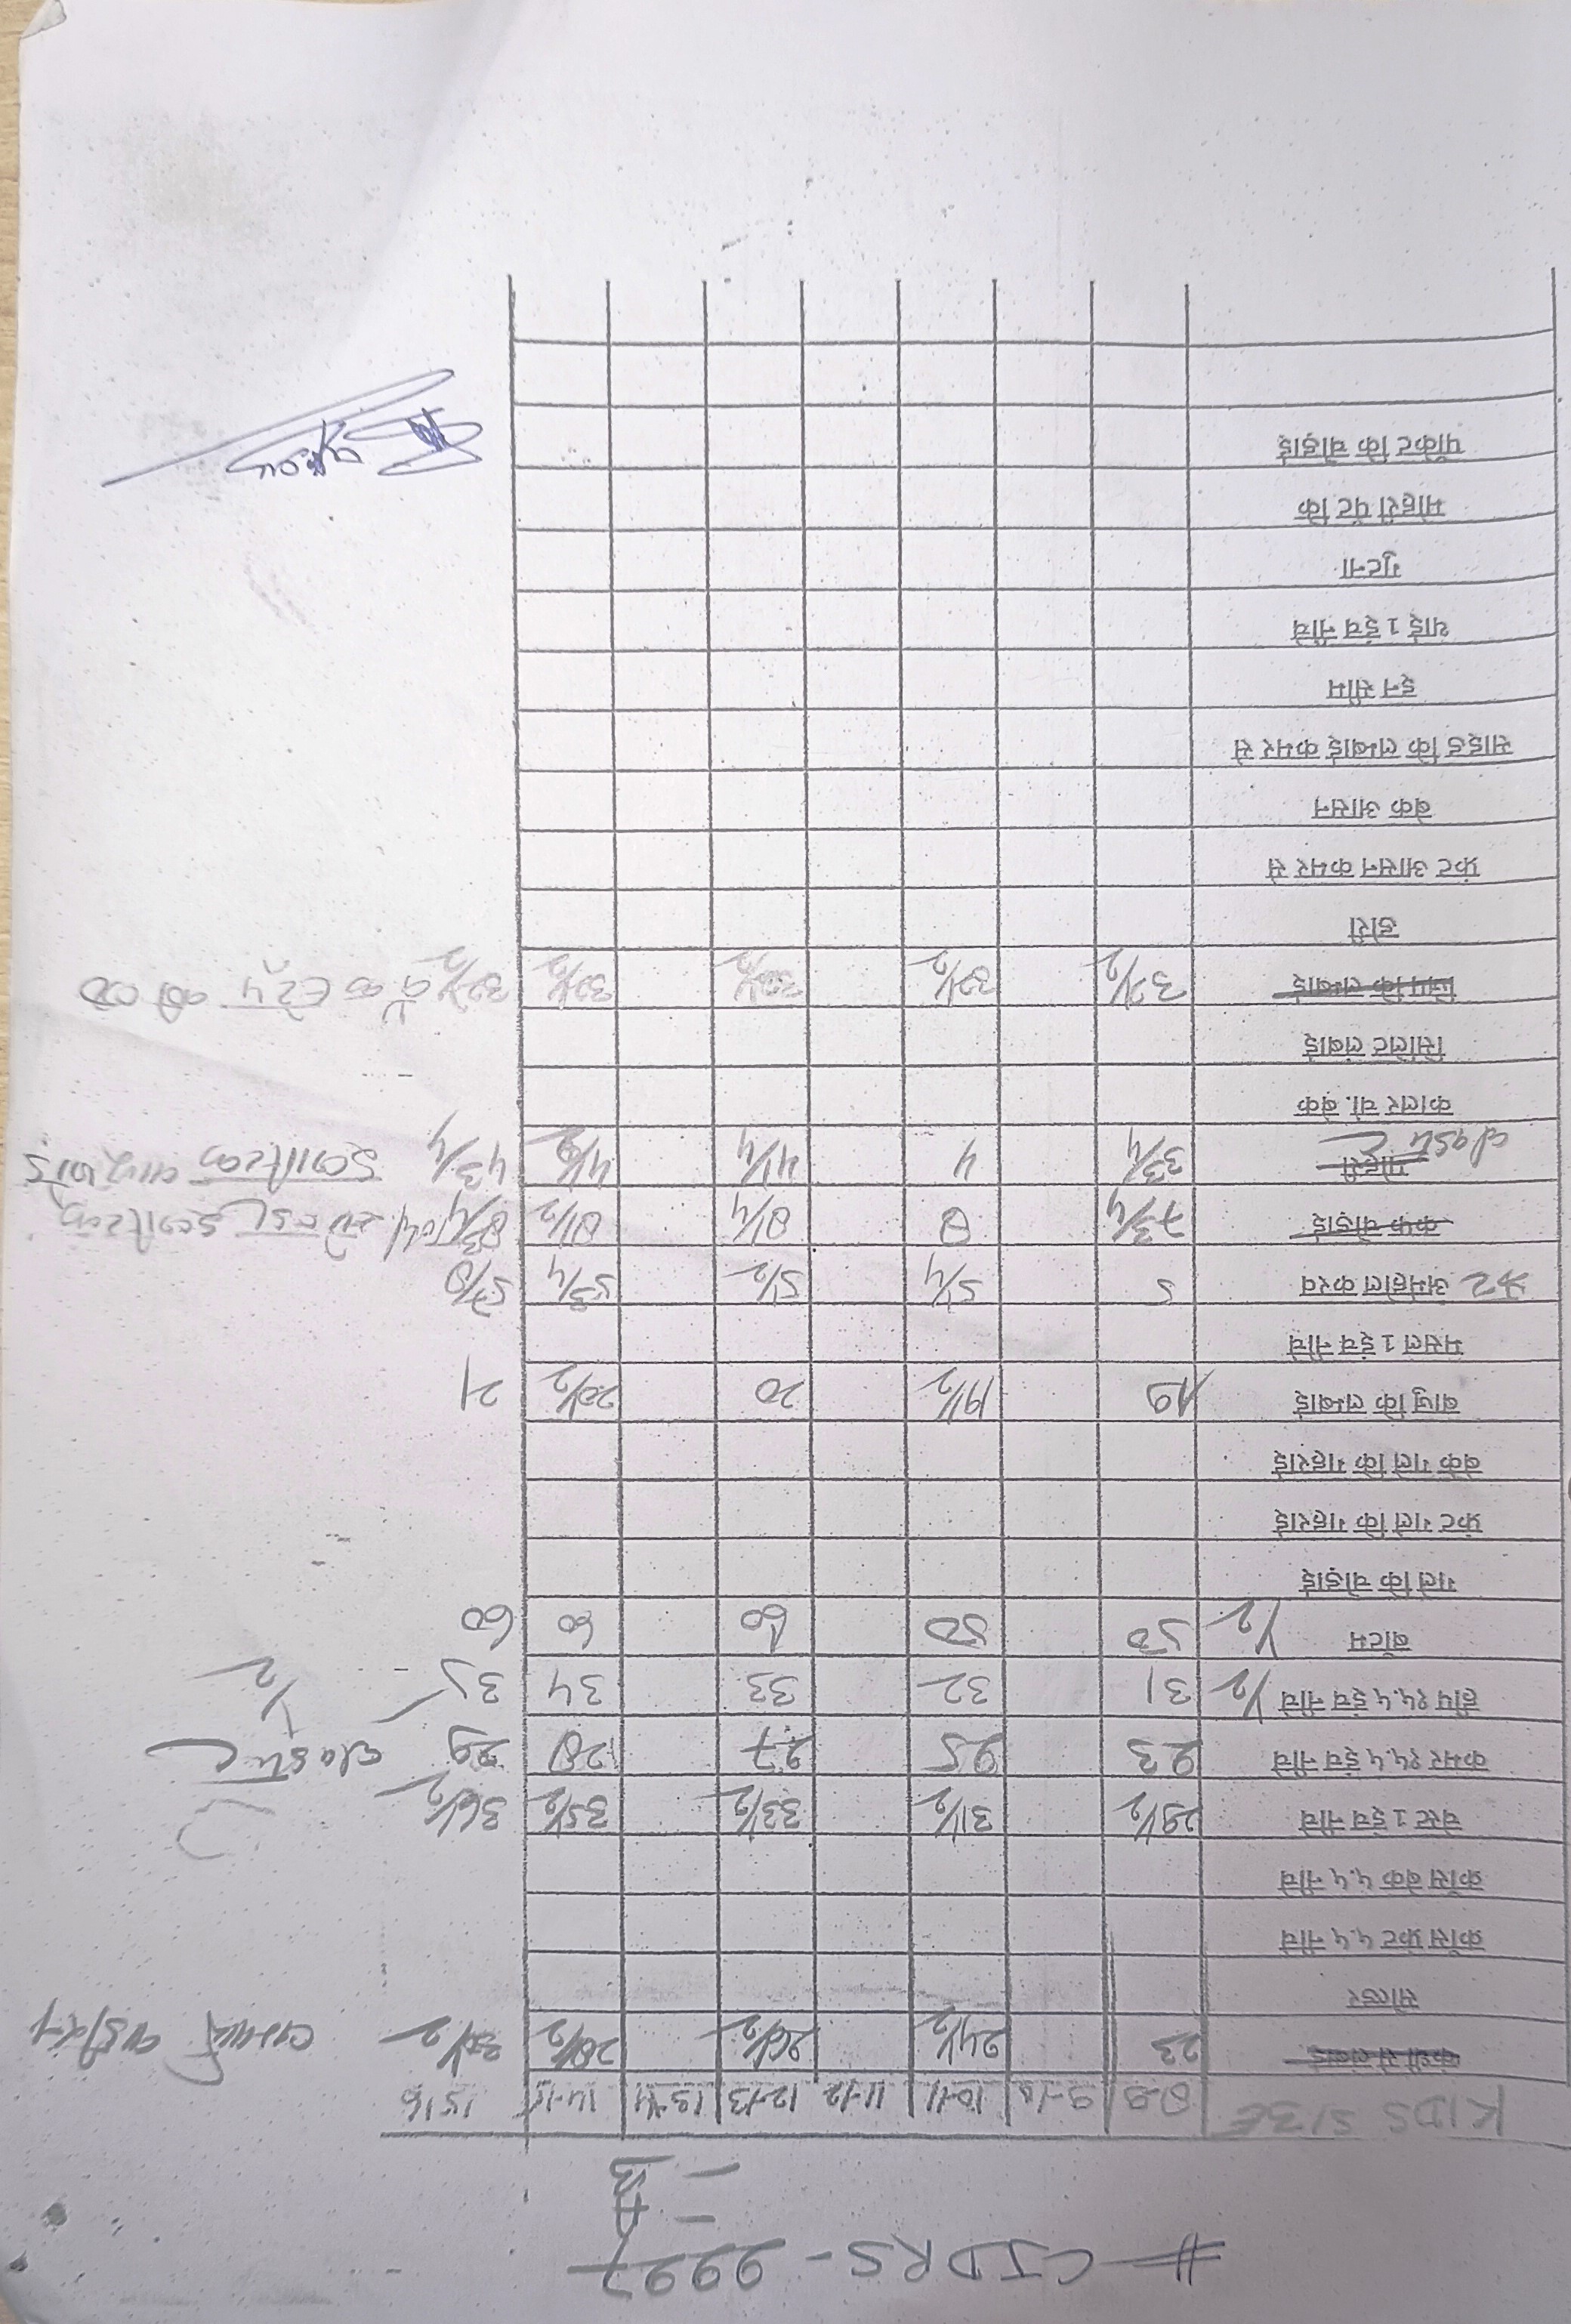 # CJDRS - 9997
- A
- B
KIDS SIZE 8-9 9-10 10-11 11-12 12-13 13-14 14-15 15-16
कंधो से लंबाई 23 24½ 26½ 28½ 30½
सोल्डर
क्रॉस फ्रंट ५,५ नीचे
क्रॉस बेक ५,५ नीचे
चेस्ट 1 इंच नीचे 29½ 31½ 33½ 35½ 36½
कमर १५,५ इंच नीचे 23 25 27 28 29 elastic
हीप १५,५ इंच नीचे ½ 31 32 33 34 35 ½
बॉटम ½ 50 50 60 60 60
गले कि चोड़ाई
फ्रंट गले कि गहराई
बेके गले कि गहराई
बाजु कि लम्बाई 19 19½ 20 20½ 21
मसल 1 इंच नीचे
अमेहोल करव 5 5¼ 5½ 5¾ 5⅞
कफ चोड़ाई 7¾ 8 8¼ 8½ 8¾
मोहरी elastic 3¾ 4 4¼ 4½ 4¾
कालर चो. बेक
सिलिट लंबाई
जिप कि लम्बाई 32½ 32½ 32½ 32½ 32½
डोरी
फ्रंट आसन कमर से
बेक आसन
साइड कि लम्बाई कमर से
इन सीम
थाई 1 इंच नीचे
गुटना
मोहरी पेंट कि
पॉकेट कि चोड़ाई